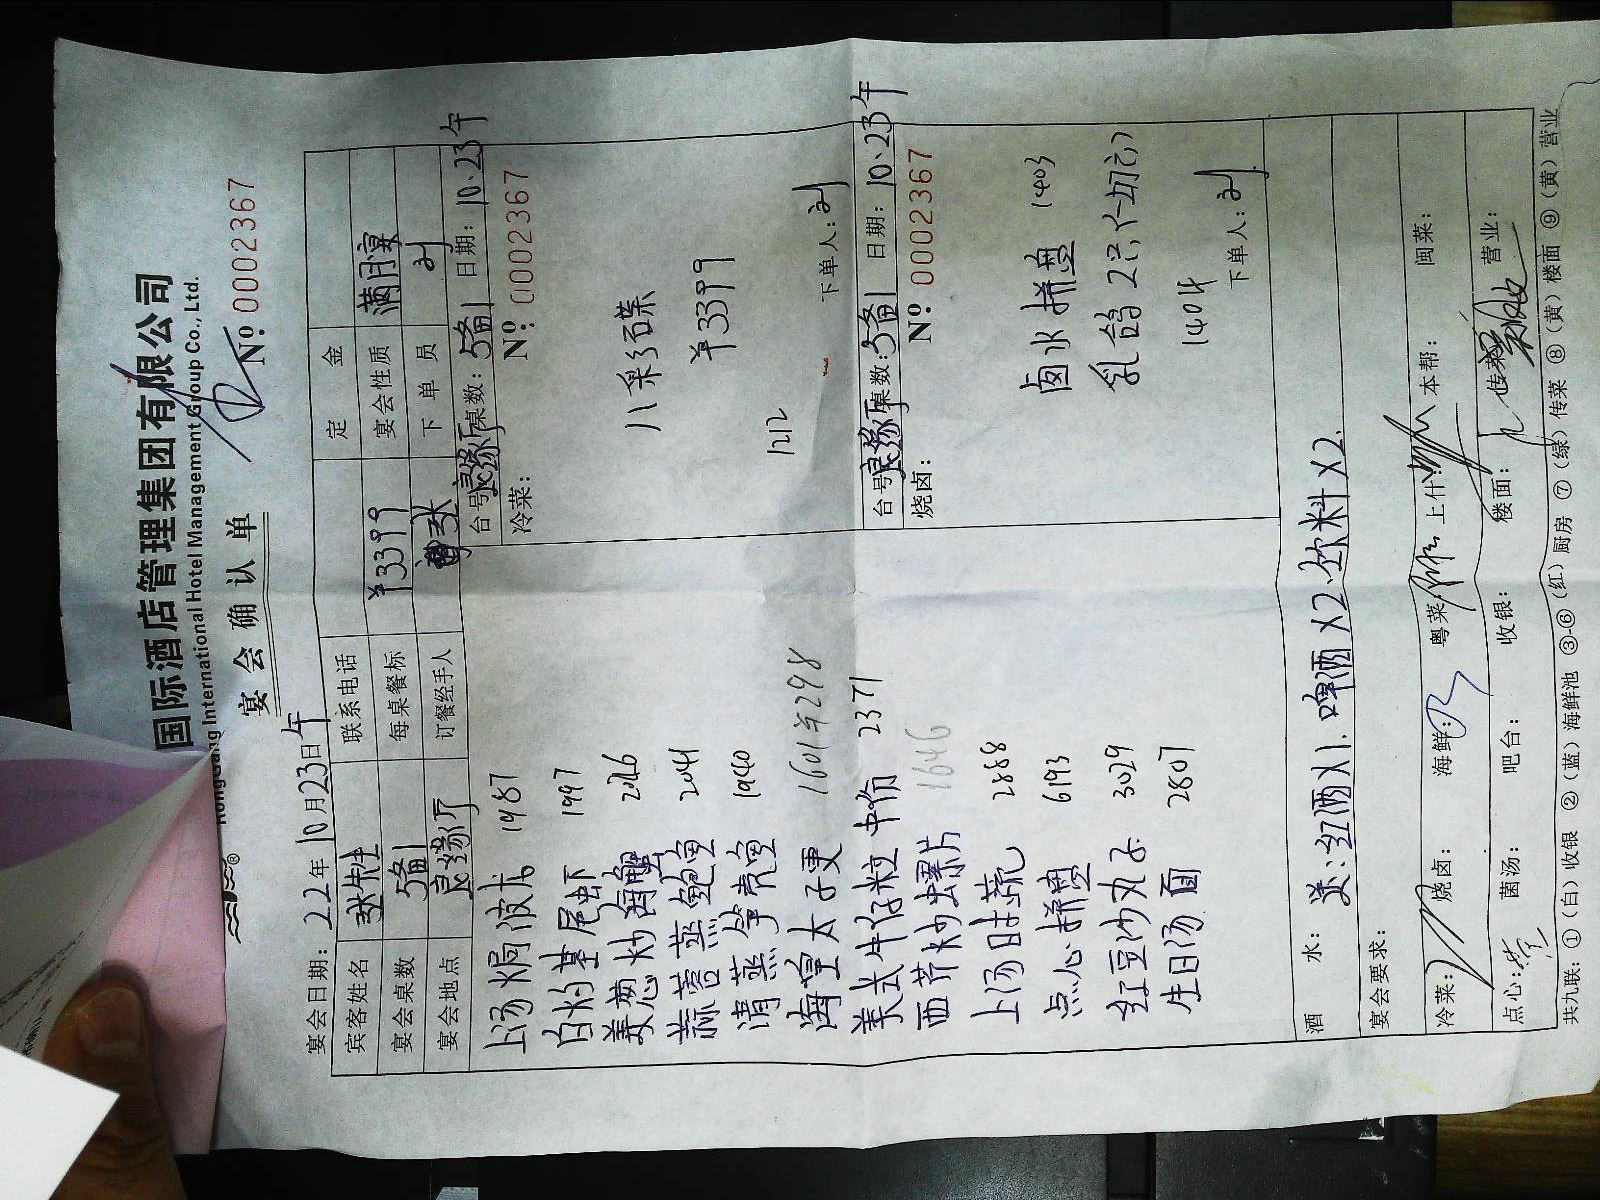 国际酒店管理集团有限公司
RongGang International Hotel Management Group Co., Ltd.
宴会确认单
№:0002367
宴会日期: 22年10月23日午
宾客姓名 张先生 联系电话 定金
宴会桌数 5备1 每桌餐标 ¥3399 宴会性质 满月宴
宴会地点 良缘厅 订餐经手人 张 下单员 刘
上汤焗波龙 1987
白灼基尾虾 1997
姜葱炒海蟹
蒜蓉蒸鲍鱼 2041
清蒸笋壳鱼 1940
海皇太子更 1601半298
美式牛仔粒 中份 2371
西芹炒螺片 1646
上汤时蔬 2888
点心拼盘 6193
红豆沙丸子 3029
生日汤面 2807
台号:良缘厅 桌数:5备1 日期:10、23午
冷菜: №:0002367
八彩碟
¥3399
1212
下单人:刘
台号:良缘厅 桌数:5备1 日期:10、23午
烧卤: №:0002367
卤水拼盘 1403
乳鸽2只(一切六)
1404
下单人:刘
酒水: 送:红酒X1. 啤酒X2. 饮料X2.
宴会要求:
冷菜: 烧卤: 海鲜: 粤菜: 上什: 本帮: 闽菜:
点心: 菌汤: 吧台: 收银: 楼面: 传菜: 营业:
共九联:①(白)收银 ②(蓝)海鲜池 ③-⑥(红)厨房 ⑦(绿)传菜 ⑧(黄)楼面 ⑨(黄)营业